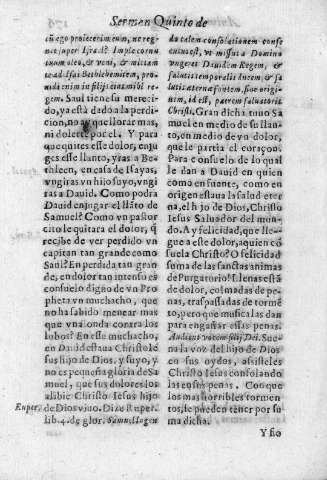 Sermon Quinto de
cũ ego proiecerim eum, ne reg-
net super Israel? Imple cornu
tuum oleo, & veni, & mittam
te ad Isai Bethlehemitem, pro-
uidi enim in filijs eius mihi re-
gem. Saul tiene su mereci-
do, ya está dado a la perdi-
cion, no ay que llorar mas,
ni dolerte por el. Y para
que quites esse dolor, enju-
ges esse llanto, yras a Be-
thleen, en casa de Isayas,
vngiras vn hijo suyo, vng-
iras a Dauid. Como podra
Dauid enjugar el llãto de
Samuel? Como vn pastor
cito le quitara el dolor, q̃
recibe de ver perdido vn
capitan tan grande como
Saul? En perdida tan gran
de, en dolor tan intenso es
consuelo digno de vn Pro
pheta vn muchacho, que
no ha sabido menear mas
que vna onda contra los
lobos? En esse muchacho,
en Dauid estaua Christo Ie
sus hijo de Dios, y suyo, y
no es pequeña gloria de Sa
muel, que sus dolores los
aliuie Christo Iesus hijo
de Dios viuo. Dize Ruper.
lib. 4. de glor. Samuel lugen
Euper.
do talem consolationem conse
cutus est, vt missus a Domino
vngeret Dauidem Regem, &
salutis temporalis lucem, & sa
lutis æternæ fontem, siue origi-
nem, id est, patrem salutoris
Christi. Gran dicha tuuo Sa
muel en medio de su llan-
to, en medio de vn dolor,
que le partia el coraçon.
Para consuelo de lo qual
le dan a Dauid en quien
como en fuente, como en
origen estaua la salud eter
na, el hijo de Dios, Christo
Iesus Saluador del mun-
do. A y felicidad, que lle-
gue a este dolor, aquien cõ
suela Christo? O felicidad
suma de las sanctas animas
de Purgatorio! llenas està
de dolor, colmadas de pe-
nas, traspassadas de torme
to, pero que musica las dan
para engastar essas penas.
Audient vocem filij Dei. Sue-
na la voz del hijo de Dios
en sus oydos, assisteles
Christo Iesus consolando
las en sus penas. Con que
los mas horribles tormen-
tos, le pueden tener por su
ma dicha.
Y fiõ